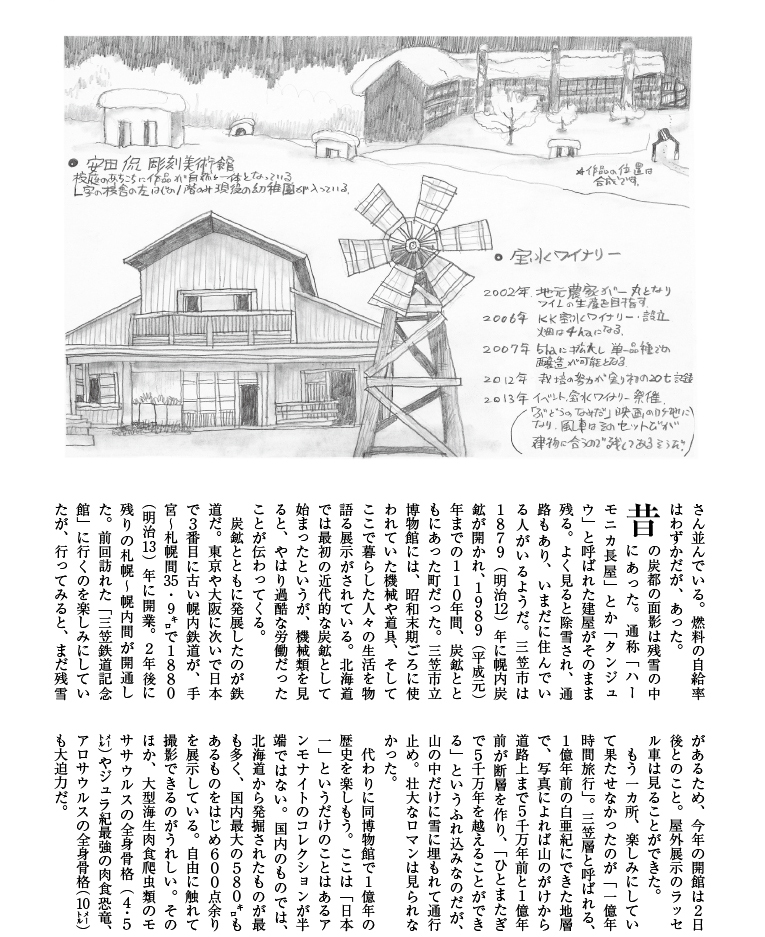 ● 安田 侃 彫刻美術館
校庭のあちこちに作品が自然と一体となっている
L字の校舎の左はじの1階のみ現役の幼稚園が入っている
*作品の位置は
合成です。
● 宝水ワイナリー
2002年 地元農家が一丸となり
ワインの生産を目指す
2006年 KK宝水ワイナリー・設立
畑は4haになる
2007年 5haに拡大し 単一品種での
醸造が可能となる
2012年 栽培の努力が実り初の20t記録
2013年 イベント宝水ワイナリー祭催
「ぶどうのなみだ」映画のロケ地に
なり、風車はそのセットだが
建物に合うので残してあるそうだ
さん並んでいる。燃料の自給率
はわずかだが、あった。
昔の炭都の面影は残雪の中
にあった。通称「ハー
モニカ長屋」とか「タンジュ
ウ」と呼ばれた建屋がそのまま
残る。よく見ると除雪され、通
路もあり、いまだに住んでい
る人がいるようだ。三笠市は
1879（明治12）年に幌内炭
鉱が開かれ、1989（平成元）
年までの110年間、炭鉱とと
もにあった町だった。三笠市立
博物館には、昭和末期ごろに使
われていた機械や道具、そして
ここで暮らした人々の生活を物
語る展示がされている。北海道
では最初の近代的な炭鉱として
始まったというが、機械類を見
ると、やはり過酷な労働だった
ことが伝わってくる。
炭鉱とともに発展したのが鉄
道だ。東京や大阪に次いで日本
で3番目に古い幌内鉄道が、手
宮～札幌間35・9㌔で1880
（明治13）年に開業。2年後に
残りの札幌～幌内間が開通し
た。前回訪れた「三笠鉄道記念
館」に行くのを楽しみにしてい
たが、行ってみると、まだ残雪
があるため、今年の開館は2日
後とのこと。屋外展示のラッセ
ル車は見ることができた。
もう一カ所、楽しみにしてい
て果たせなかったのが「一億年
時間旅行」。三笠層と呼ばれる、
1億年前の白亜紀にできた地層
で、写真によれば山のがけから
道路上まで5千万年前と1億年
前が断層を作り、「ひとまたぎ
で5千万年を越えることができ
る」というふれ込みなのだが、
山の中だけに雪に埋もれて通行
止め。壮大なロマンは見られな
かった。
代わりに同博物館で1億年の
歴史を楽しもう。ここは「日本
一」というだけのことはあるア
ンモナイトのコレクションが半
端ではない。国内のものでは、
北海道から発掘されたものが最
も多く、国内最大の580㌔も
あるものをはじめ600点余り
を展示している。自由に触れて
撮影できるのがうれしい。その
ほか、大型海生肉食爬虫類のモ
ササウルスの全身骨格（4・5
㍍）やジュラ紀最強の肉食恐竜、
アロサウルスの全身骨格（10㍍）
も大迫力だ。